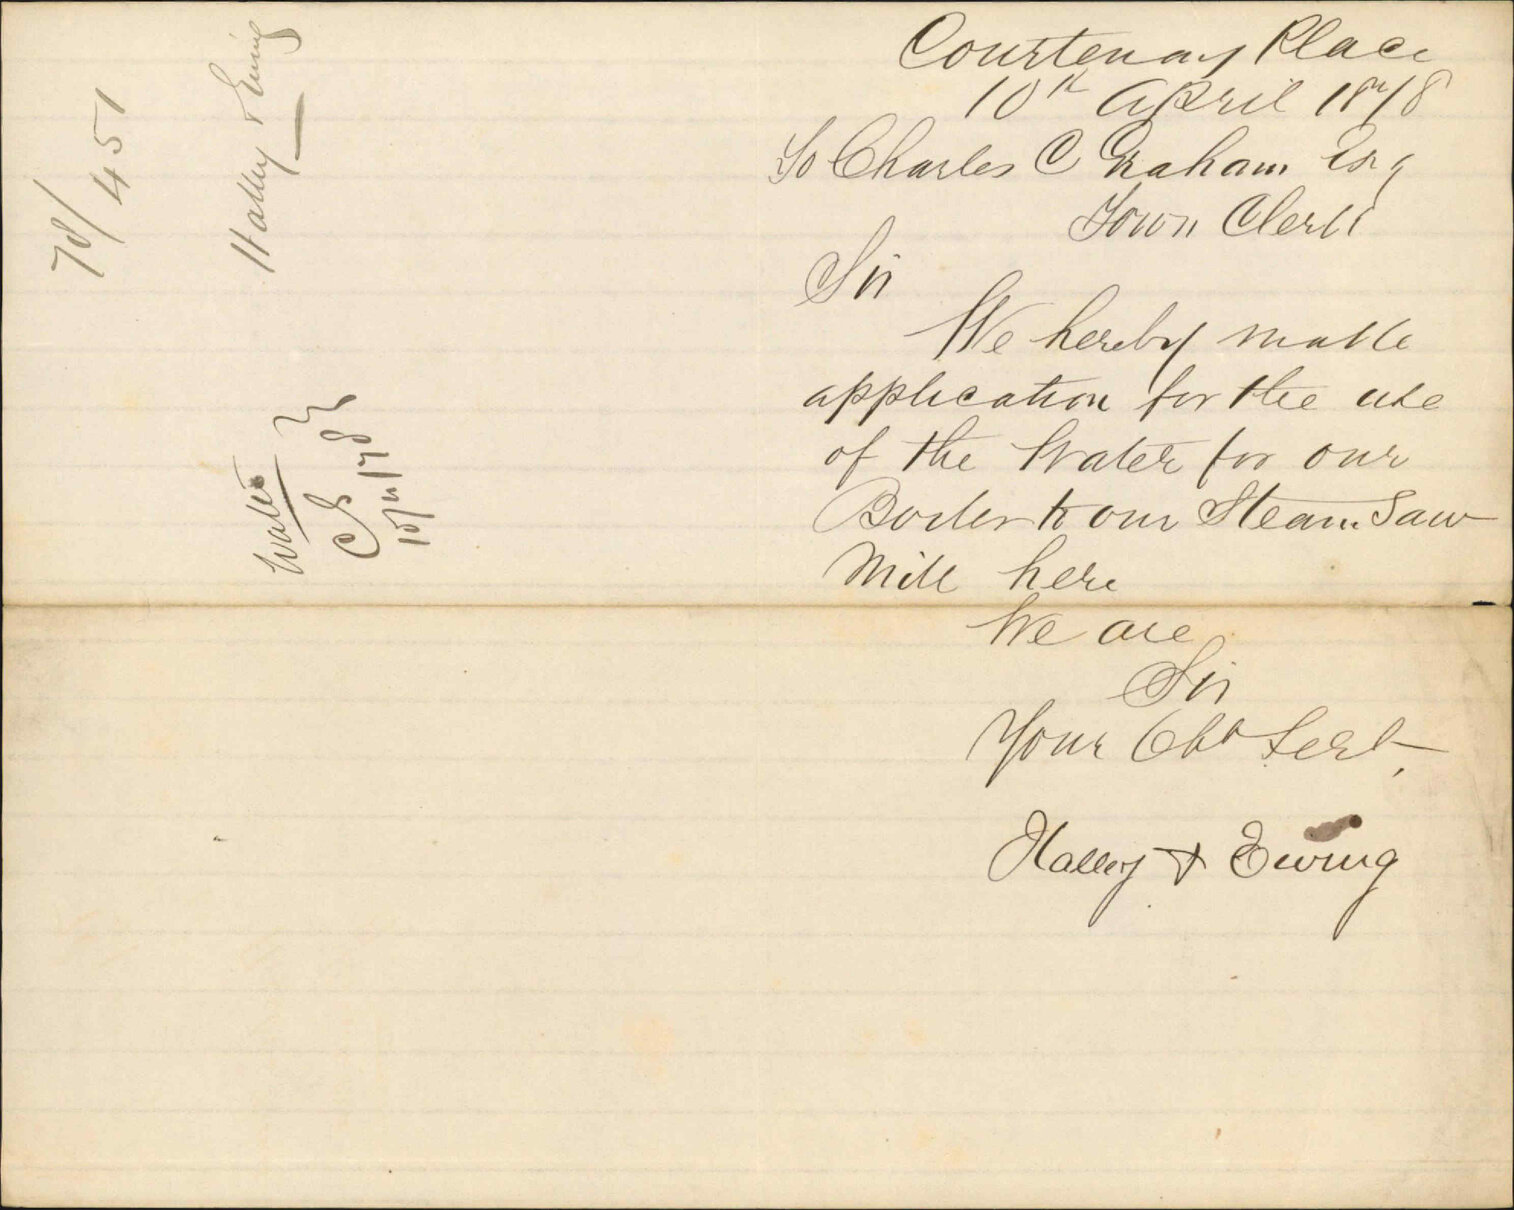 Courtenay Place
10th April 1878
To Charles C Graham Esq
Town Clerk
Sir
We hereby make
application for the use
of the Water for our
Boiler to our Steam Saw
Mill here
We are
Sir
Your Obt Servt
Halley & Ewing
78/451
Halley & Ewing
Water
CG
10/4/78